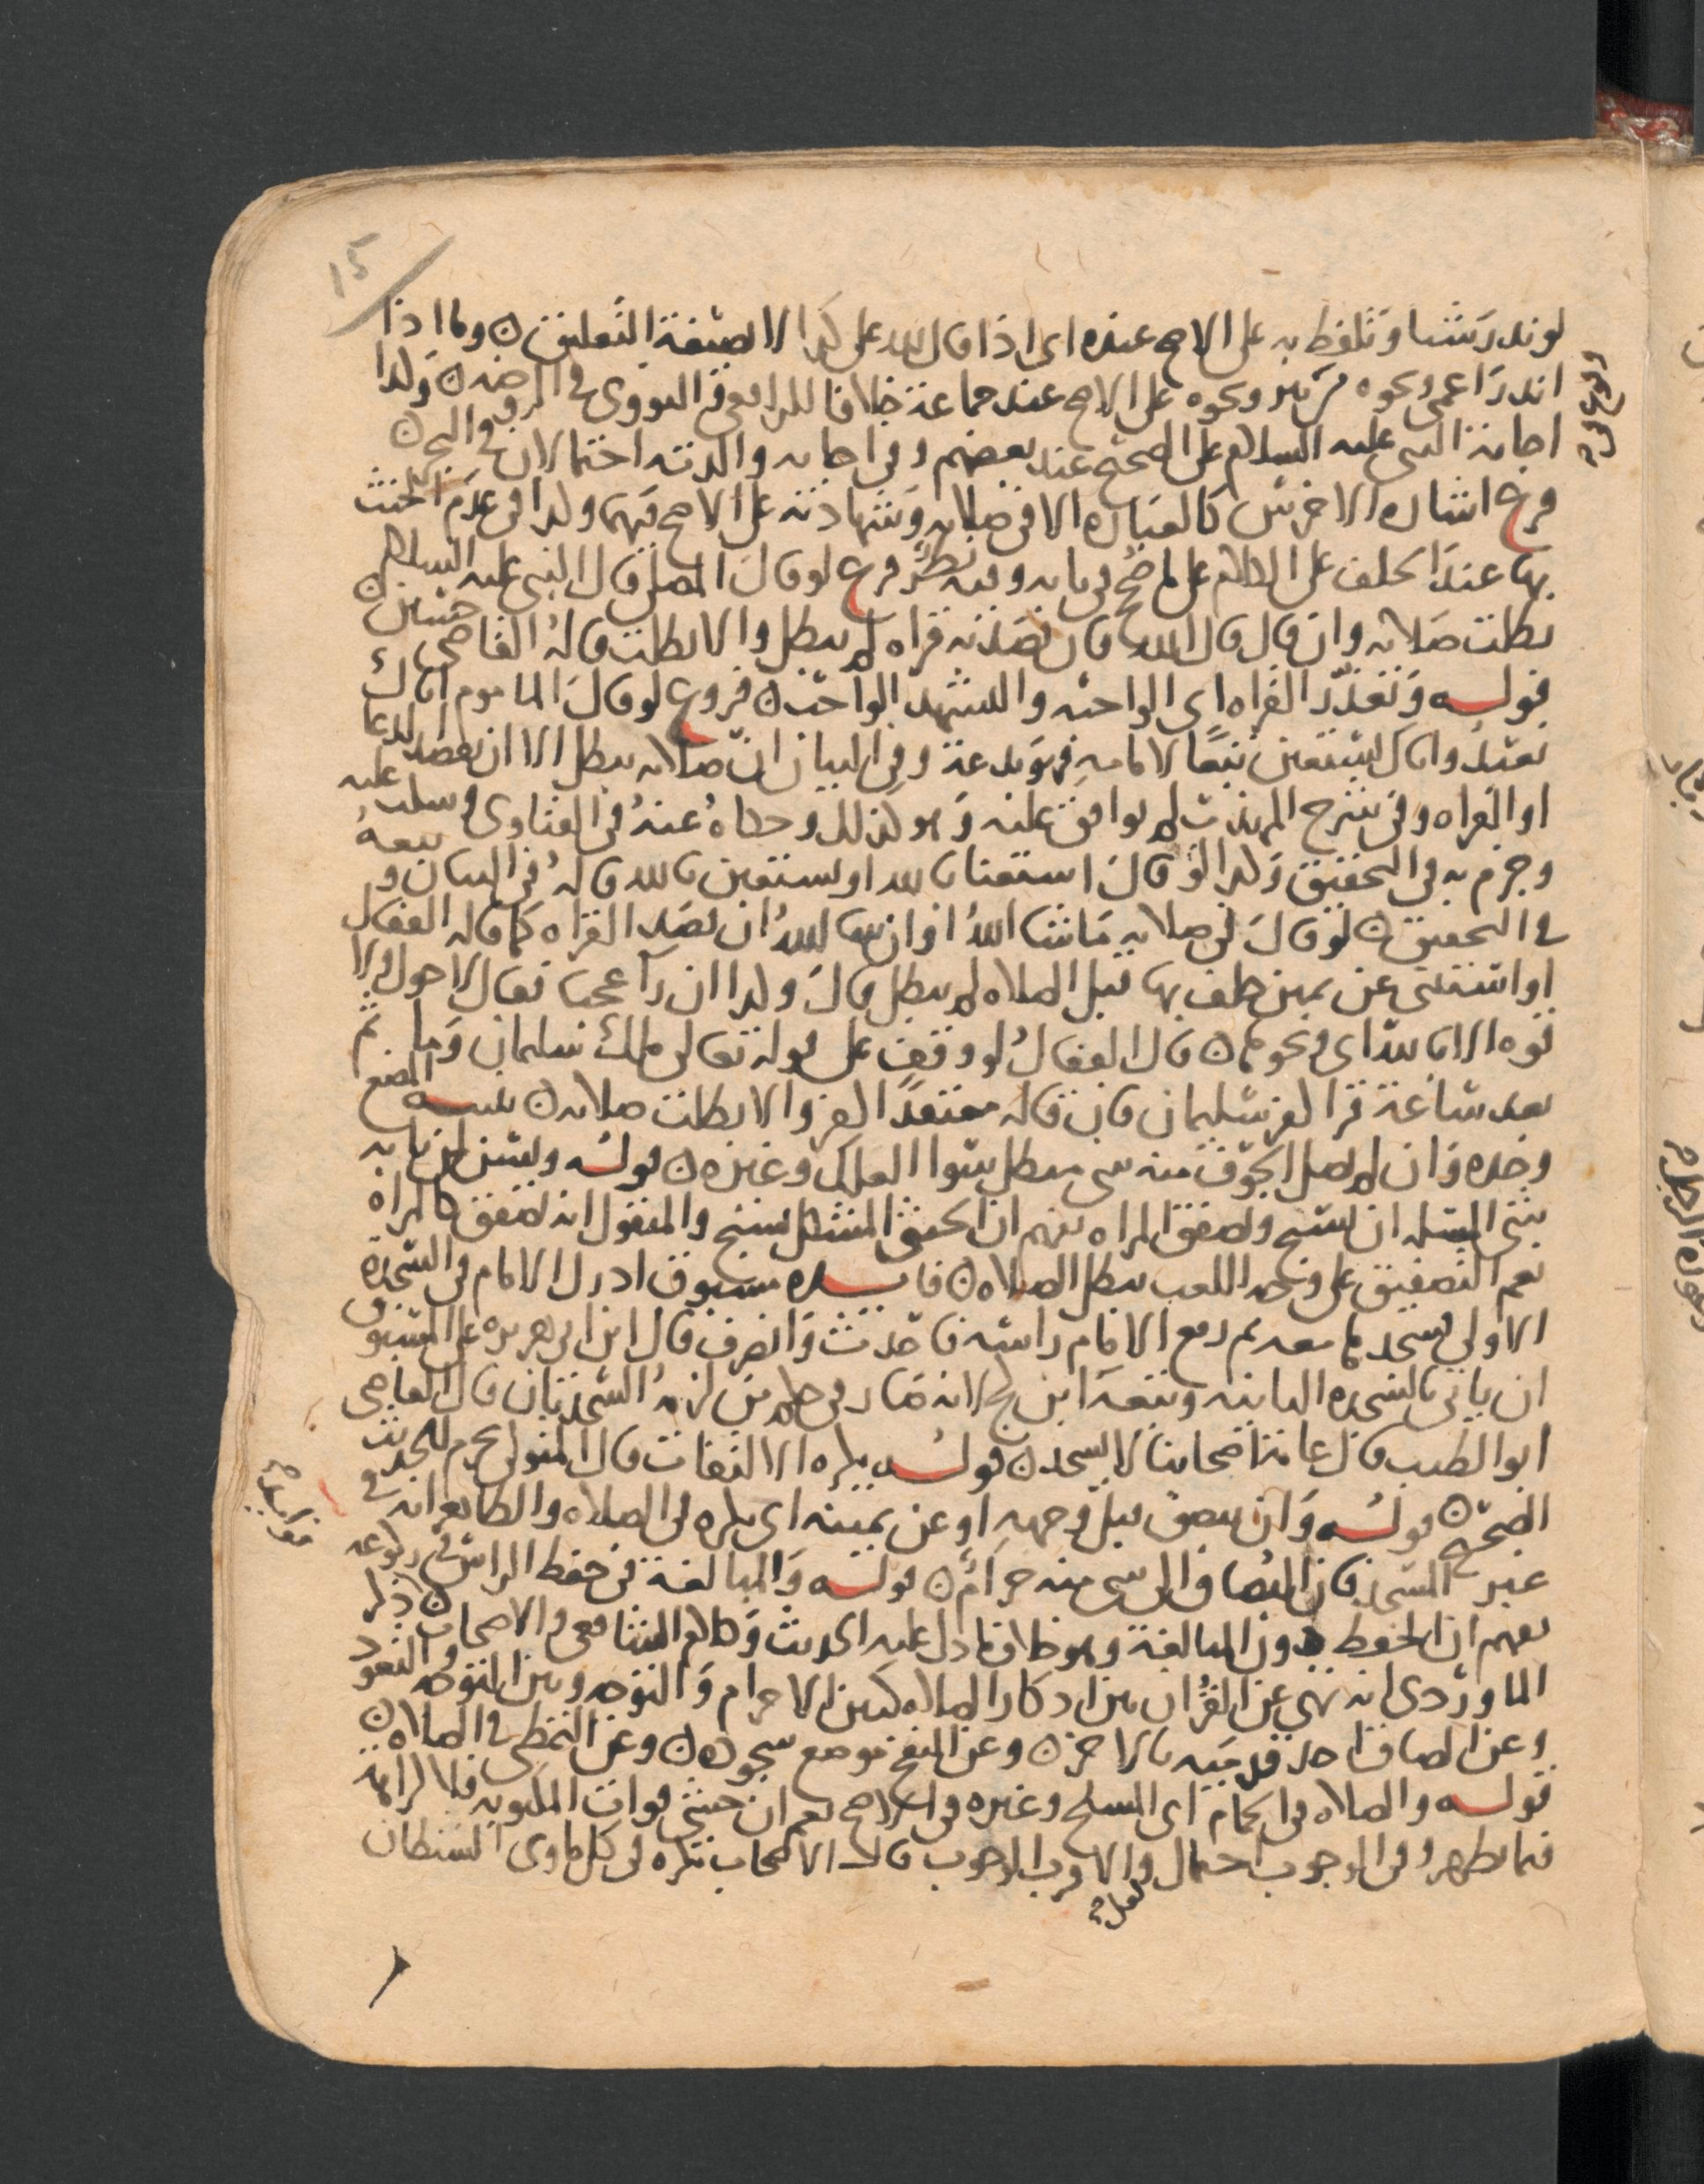 15
لو نذر شيا وتلفظ به على الاصح عنده اى اذا قال لله على كذا لا بصيغة التعليق ن وكما اذا
انذر اعمى ونحوه من بير ونحوه على الاصح عند جماعة خلافا للرافعى والنووى فى الروضه ن وكذا
اجابة النبى عليه السلام على الصحيح عند بعضهم وفى اجابه والديه احتمالان فى البحر ن
فرع اشاره الاخرس كالعباره الا فى صلاته وشهادته على الاصح فيهما وكذا فى عدم الحنث
بها عند الحلف على الكلام على ما صحح فى بابه وفيه نظر فرع لو قال المصلى قال النبى عليه السلام
بطلت صلاته وان قال قال الله فان قصد به قراه لم يبطل والا بطلت قاله القاضى حسين ن
قوله وتعذر القراه اى الواجبه والتشهد الواجب ن فروع لو قال الماموم اياك
نعبد واياك نستعين تبعا لامامه فهو بدعة وفى البيان ان صلاته يبطل الا ان يقصد الدعا
او القراه وفى شرح المهذب لم يوافق عليه وهو كذلك وحكاه عنه فى الفتاوى وسكت عليه
وجزم به فى التحقيق وكذا لو قال استعنا بالله او نستعين بالله قاله فى البيان وتبعه
فى التحقيق ن لو قال فى صلاته ما شا الله او ان شا الله ان قصد القراه كما قاله القفال
او استثنى عن يمين حلف بها قبل الصلاه لم يبطل قال وكذا ان راى عجبا فقال لا حول ولا
قوه الا بالله اى ونحوهما ن قال القفال لو وقف على قوله تعالى ملك سليمان وما ثم
بعد ساعة قرا كفر سليمان فان قاله معتقدا كفر والا بطلت صلاته ن تنبيه المضغ
وحده وان لم يصل الجوف منه شى مبطل سوا العلك وغيره ن قوله ويسن لمن نابه
شى المسله ان يسبح ويصفق المراه يفهم ان الخنثى المشكل يسبح والمنقول انه يصفق كالمراه
نعم التصفيق على وجه اللعب يبطل الصلاه ن فايده مسبوق ادرك الامام فى السجده
الاولى فسجد ها معه ثم رفع الامام راسه فاحدث وانصرف قال ابن ابى هريره على المسبوق
ان ياتى بالسجده الثانيه وتبعه ابن كج لانه صار فى حكم من لزمه السجدتان قال القاضى
ابو الطيب قال عامة اصحابنا لا يسجد ن قوله يكره الالتفات قال المتولى يحرم للحديث
الصحيح ن قوله وان يبصق قبل وجهه او عن يمينه اى يكره فى الصلاه والظاهر انه فى
غير المسجد فان البصاق الى شى منه حرام ن قوله والمبالغة فى خفظ الراس فى ركوعه
يفهم ان الخفظ دون المبالغة وهو خلاف ما دل عليه الحديث وكلام الشافعى والاصحاب ن ذكر
الماوردى انه نهى عن القران بين اذكار الصلاه كبين الاحرام والتوجه وبين التوجه والتعوذ
وعن الصاق احد قدميه بالاخر ن وعن النفخ موضع سجوده ن وعن التمطى فى الصلاه ن
قوله والصلاه فى الحمام اى المسلخ وغيره فى الاصح نعم ان خشى فوات المكتوبه فلا كراهة
فيما يظهر وفى الوجوب احتمال والاقرب الوجوب قال الاصحاب تكره فى كل ماوى الشيطان